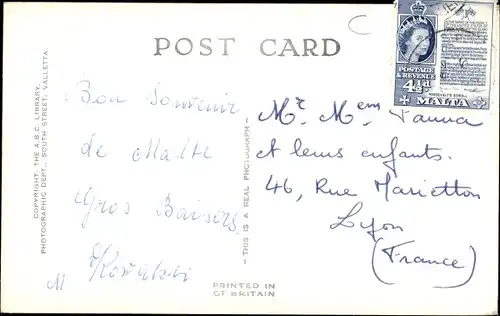 C
POST CARD
POSTAGE
& REVENUE
4½d
MALTA
COPYRIGHT, THE A.B.C. LIBRARY,
PHOTOGRAPHIC DEPT., SOUTH STREET, VALLETTA
Bon Souvenir
de Malte
Gros Baisers
M
— THIS IS A REAL PHOTOGRAPH —
Mr. Mem
et leurs enfants.
46, Rue Marietton
Lyon
(France)
PRINTED IN
GT BRITAIN